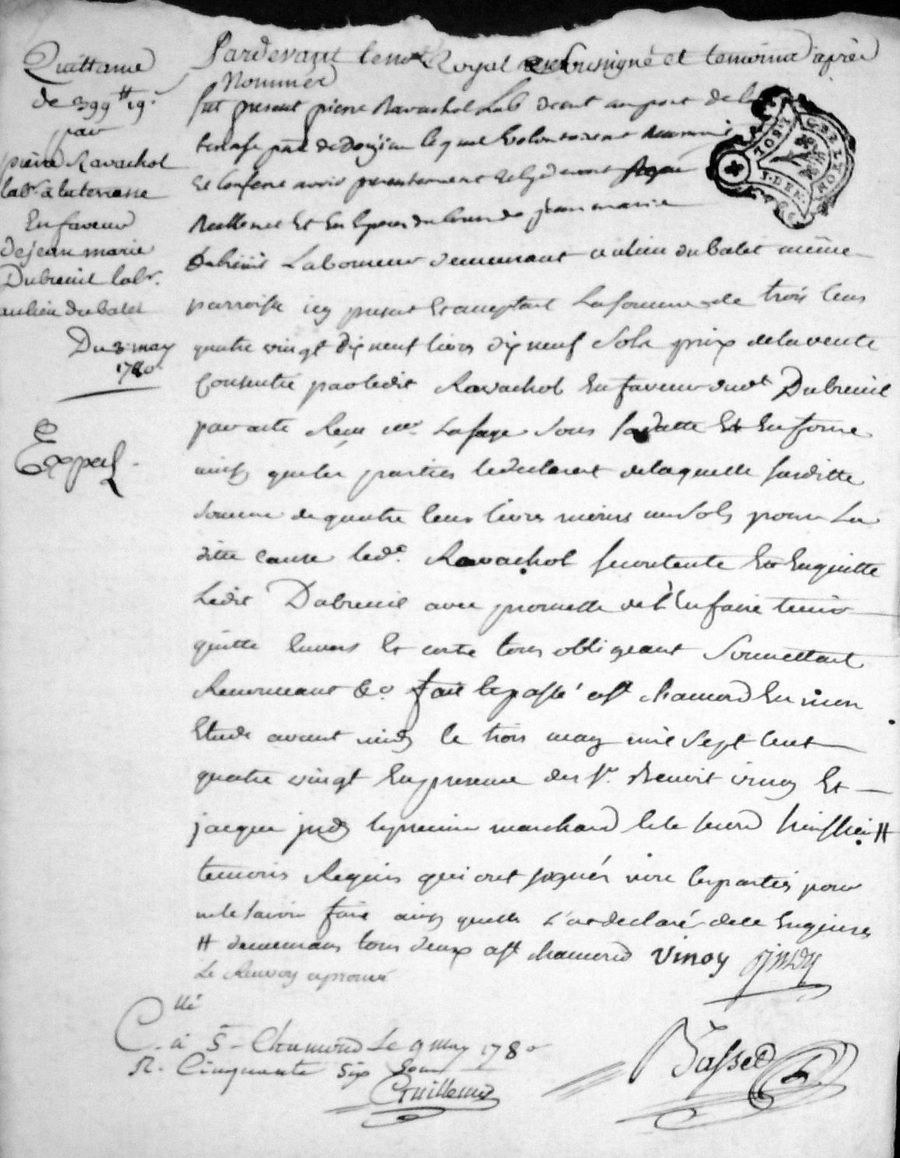 Quittance
de 399 ₶ 19 s
par
pierre Ravachol
labr. à laterrasse
En faveur
de jean marie
Dubreuil labr.
au lieu du balet
Du 3 may
1780
Exped.
Pardevant le not. Royal soussigné et temoins après
Nommés
fut present pierre Ravachol Lab. demt. au port de la
terrasse pss. de Doizieu lequel volontairemt
et confesse avoir presentement
Reellement Et En Especes du Cours de jean marie
Dubreüil Laboureur demeurant au lieu du balet même
parroisse icy present Et acceptant La somme de trois Cens
quatre vingt dix neuf livres dix neuf Sols prix de la vente
Consentie par ledit Ravachol En faveur dudt Dubreuil
par acte Reçu me. Lafage Sous Sa datte Et En forme
ainsy que les parties le declarent de laquelle susditte
somme de quatre Cens livres moins un Sols pour La
ditte cause led. Ravachol se contente Et En quitte
Ledit Dubreuil avec promesse de l'En faire tenir
quitte Envers Et contre tous obligeant Soumettant
Renonceant &c. fait Et passé a st. chamond En mon
Etude avant midy le trois may mil Sept Cent
quatre vingt En presence des Sr. Benoit vinoy Et
jacque jndy le premier marchand Et le second ₶
temoins Requis qui ont signés non les parties pour
ne le savoir faire ainsy quelles L'ont declaré de ce Enquises
₶ demeurans tous deux a st. chamond Vinoy jndy
Le Renvoy aprouvé
Cllé
à St. Chamond Le 9 may 1780
R. Cinquante six sous
Guillemin
Basset